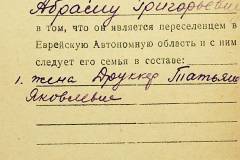 Абраму Григорьевичу
в том, что он является переселенцем в
Еврейскую Автономную область и с ним
следует его семья в составе:
1. жена Друккер Татьяна
Яковлевна